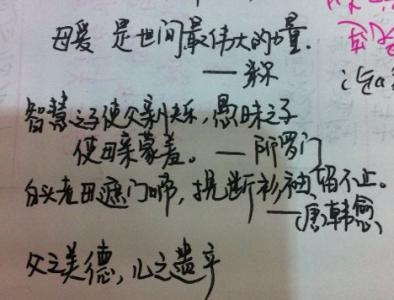 母爱是世间最伟大的力量.
——米尔
智慧之子使父亲快乐,愚昧之子
使母亲蒙羞。—所罗门
白头老母遮门啼,挽断衫袖留不止。
——唐,韩愈
父之美德,儿之遗产